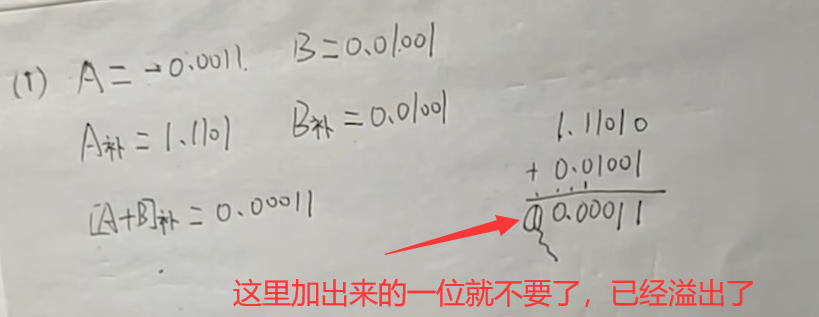 (1) A = -0.0011. B = 0.01001
A补 = 1.1101 B补 = 0.01001
1.11010
+ 0.01001
[A+B]补 = 0.00011
① 0.00011
这里加出来的一位就不要了，已经溢出了